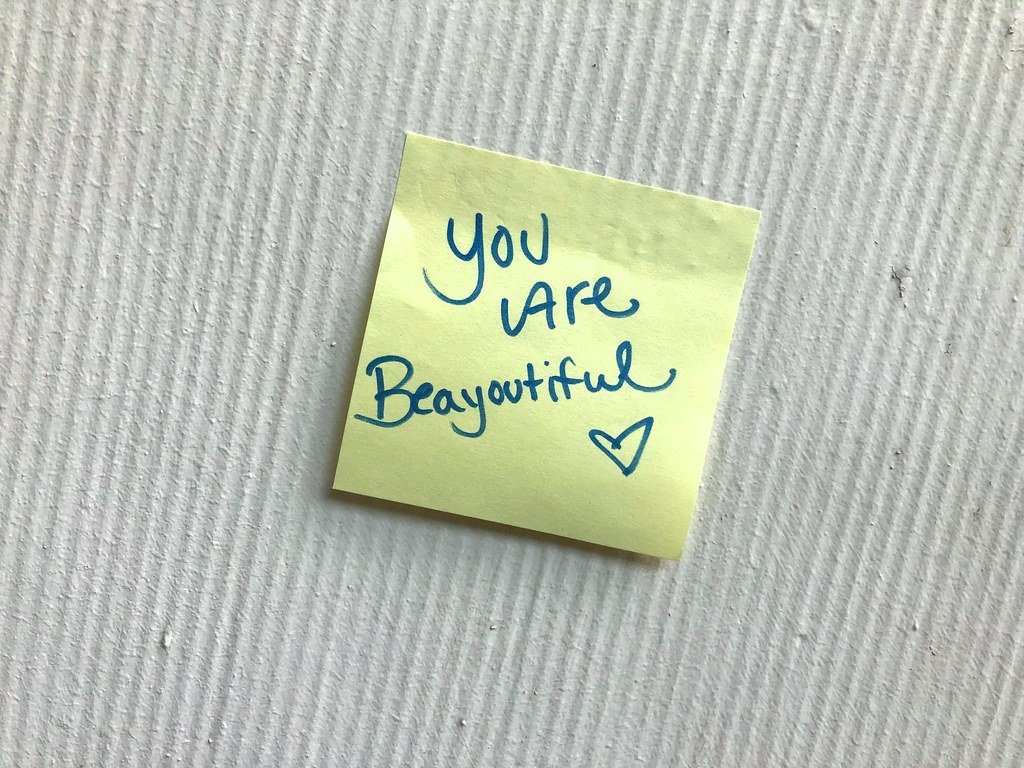 You
Are
Beayoutiful